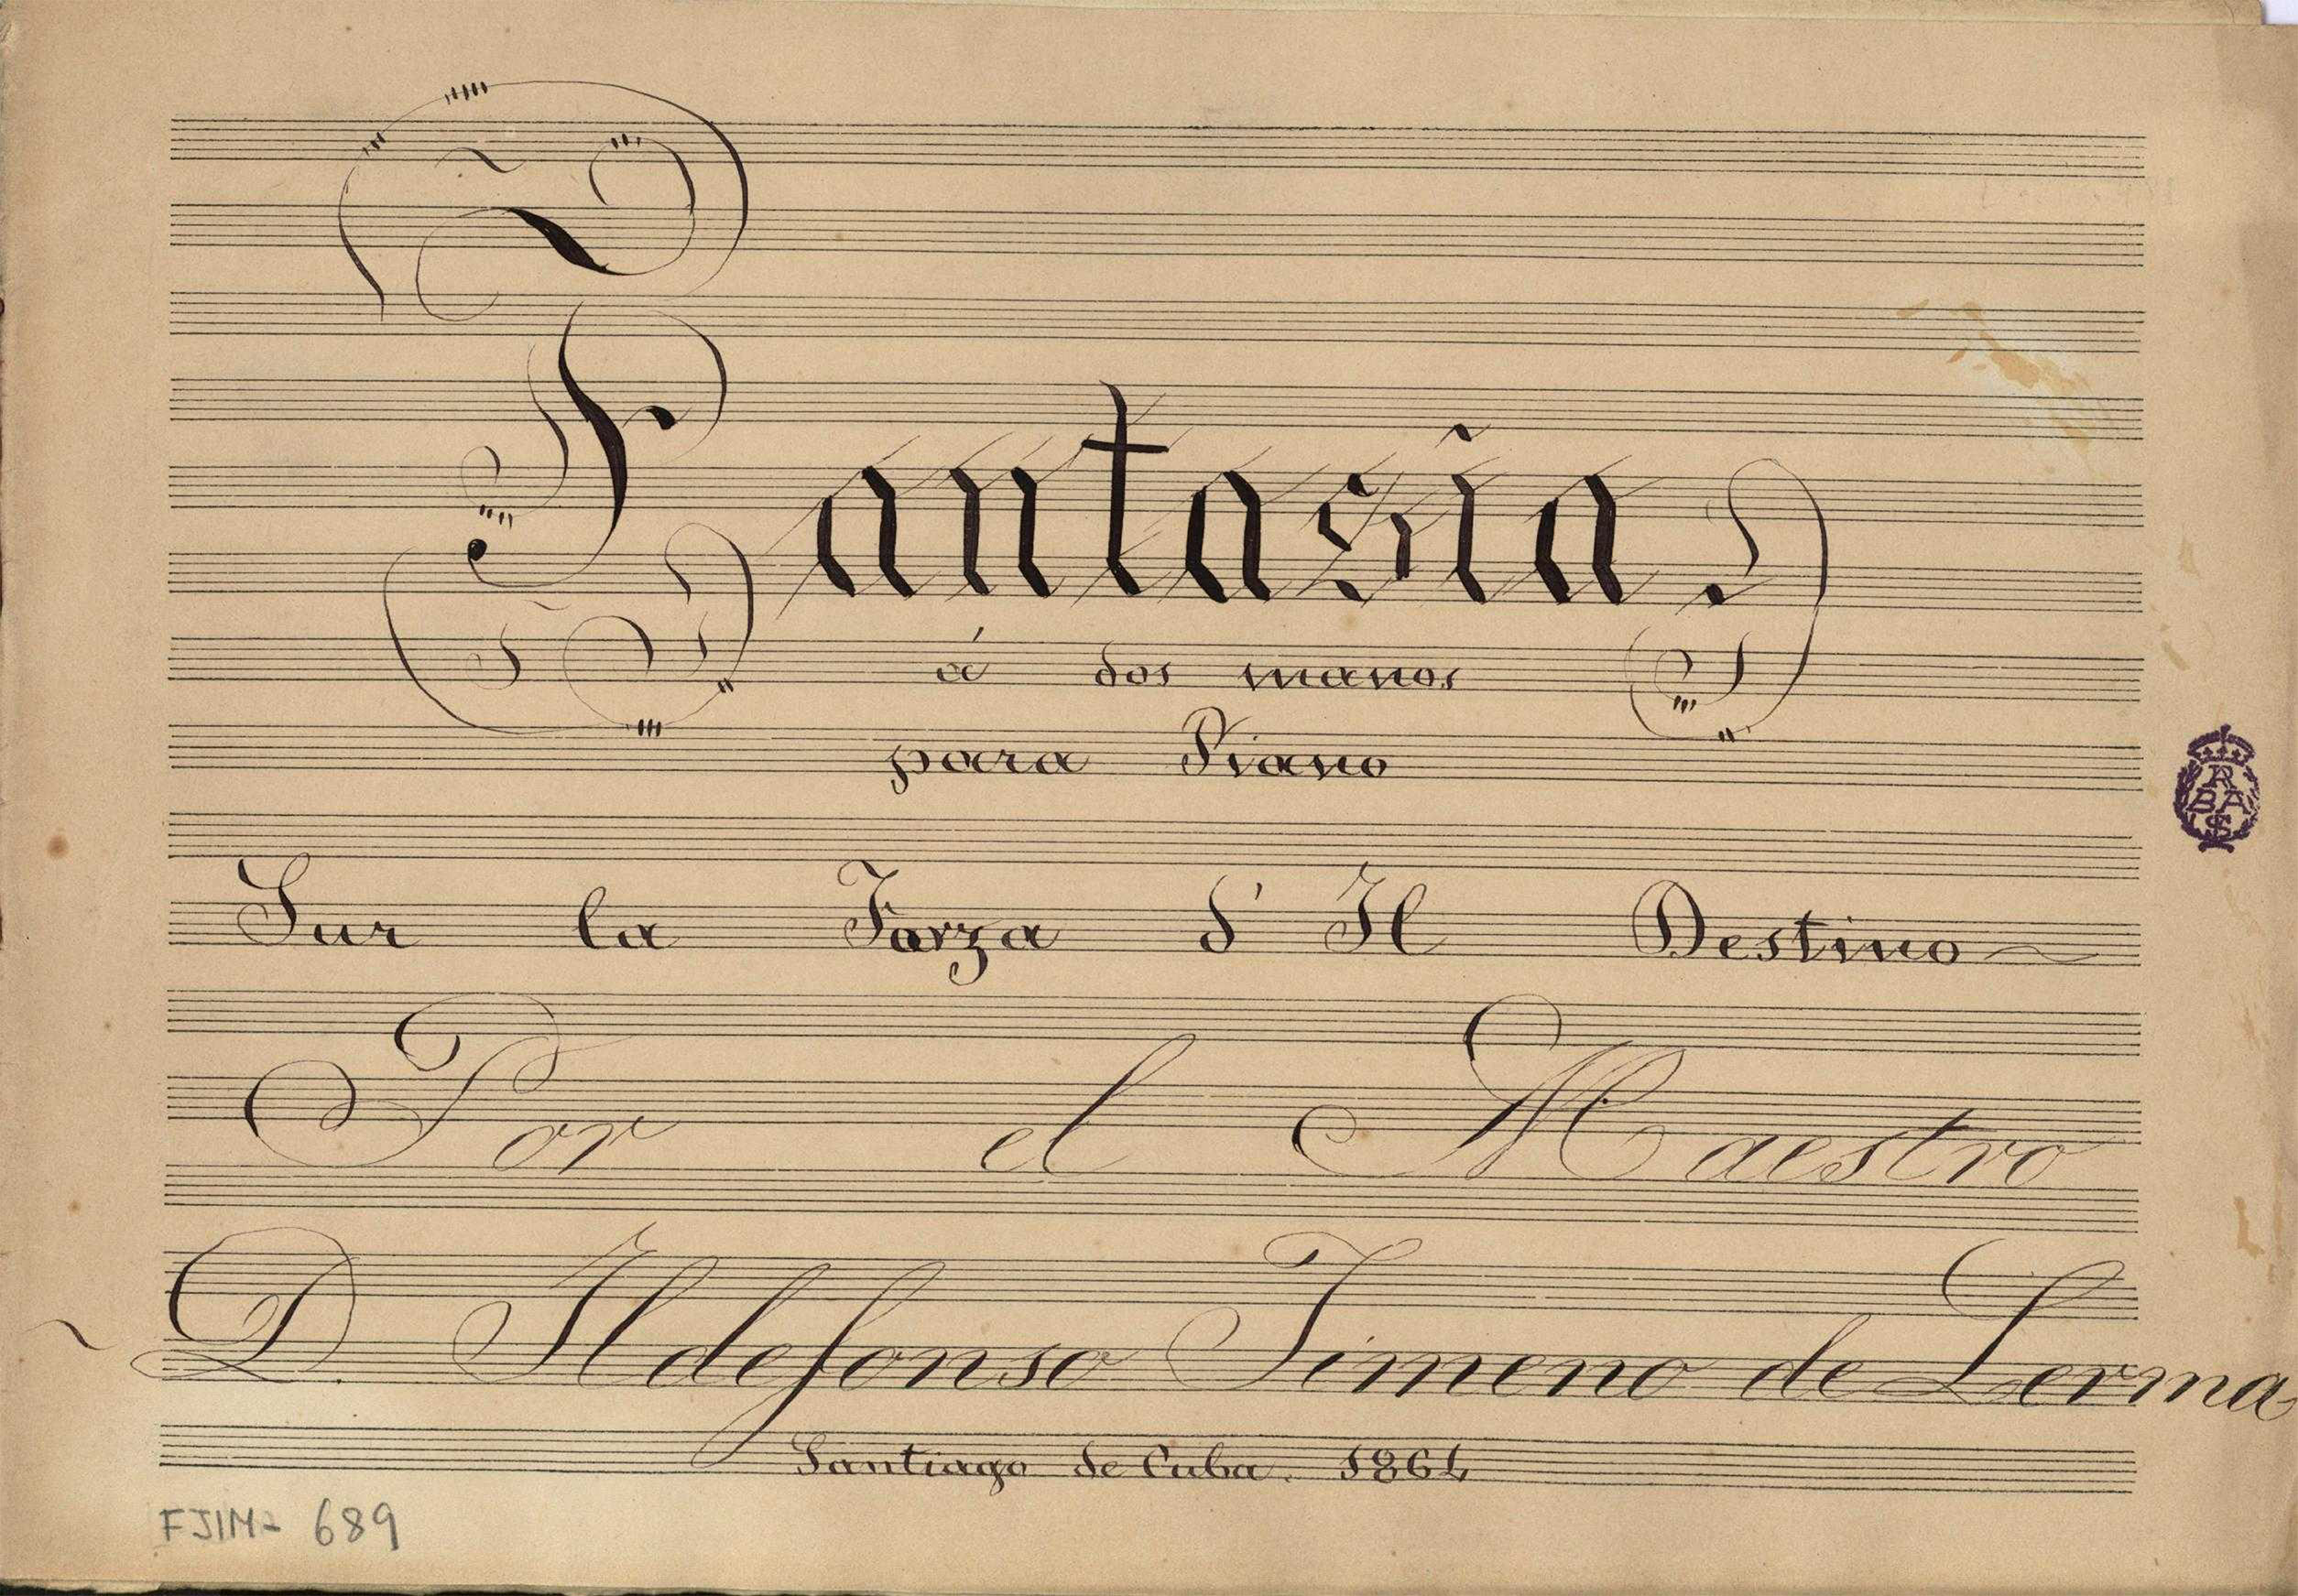 Fantasia
á dos manos
para Piano
Sur la Forza d' Il Destino
Por el Maestro
D. Ildefonso Jimeno de Lerma
Santiago de Cuba. 1864
FJIM- 689
R
BA
S